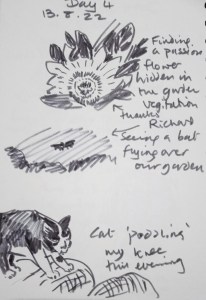 Day 4
13.8.22
Finding
a passion
flower
hidden in
the garden
vegetation
thanks
Richard
Seeing a bat
flying over
our garden
Cat 'poddling'
my knee
this evening